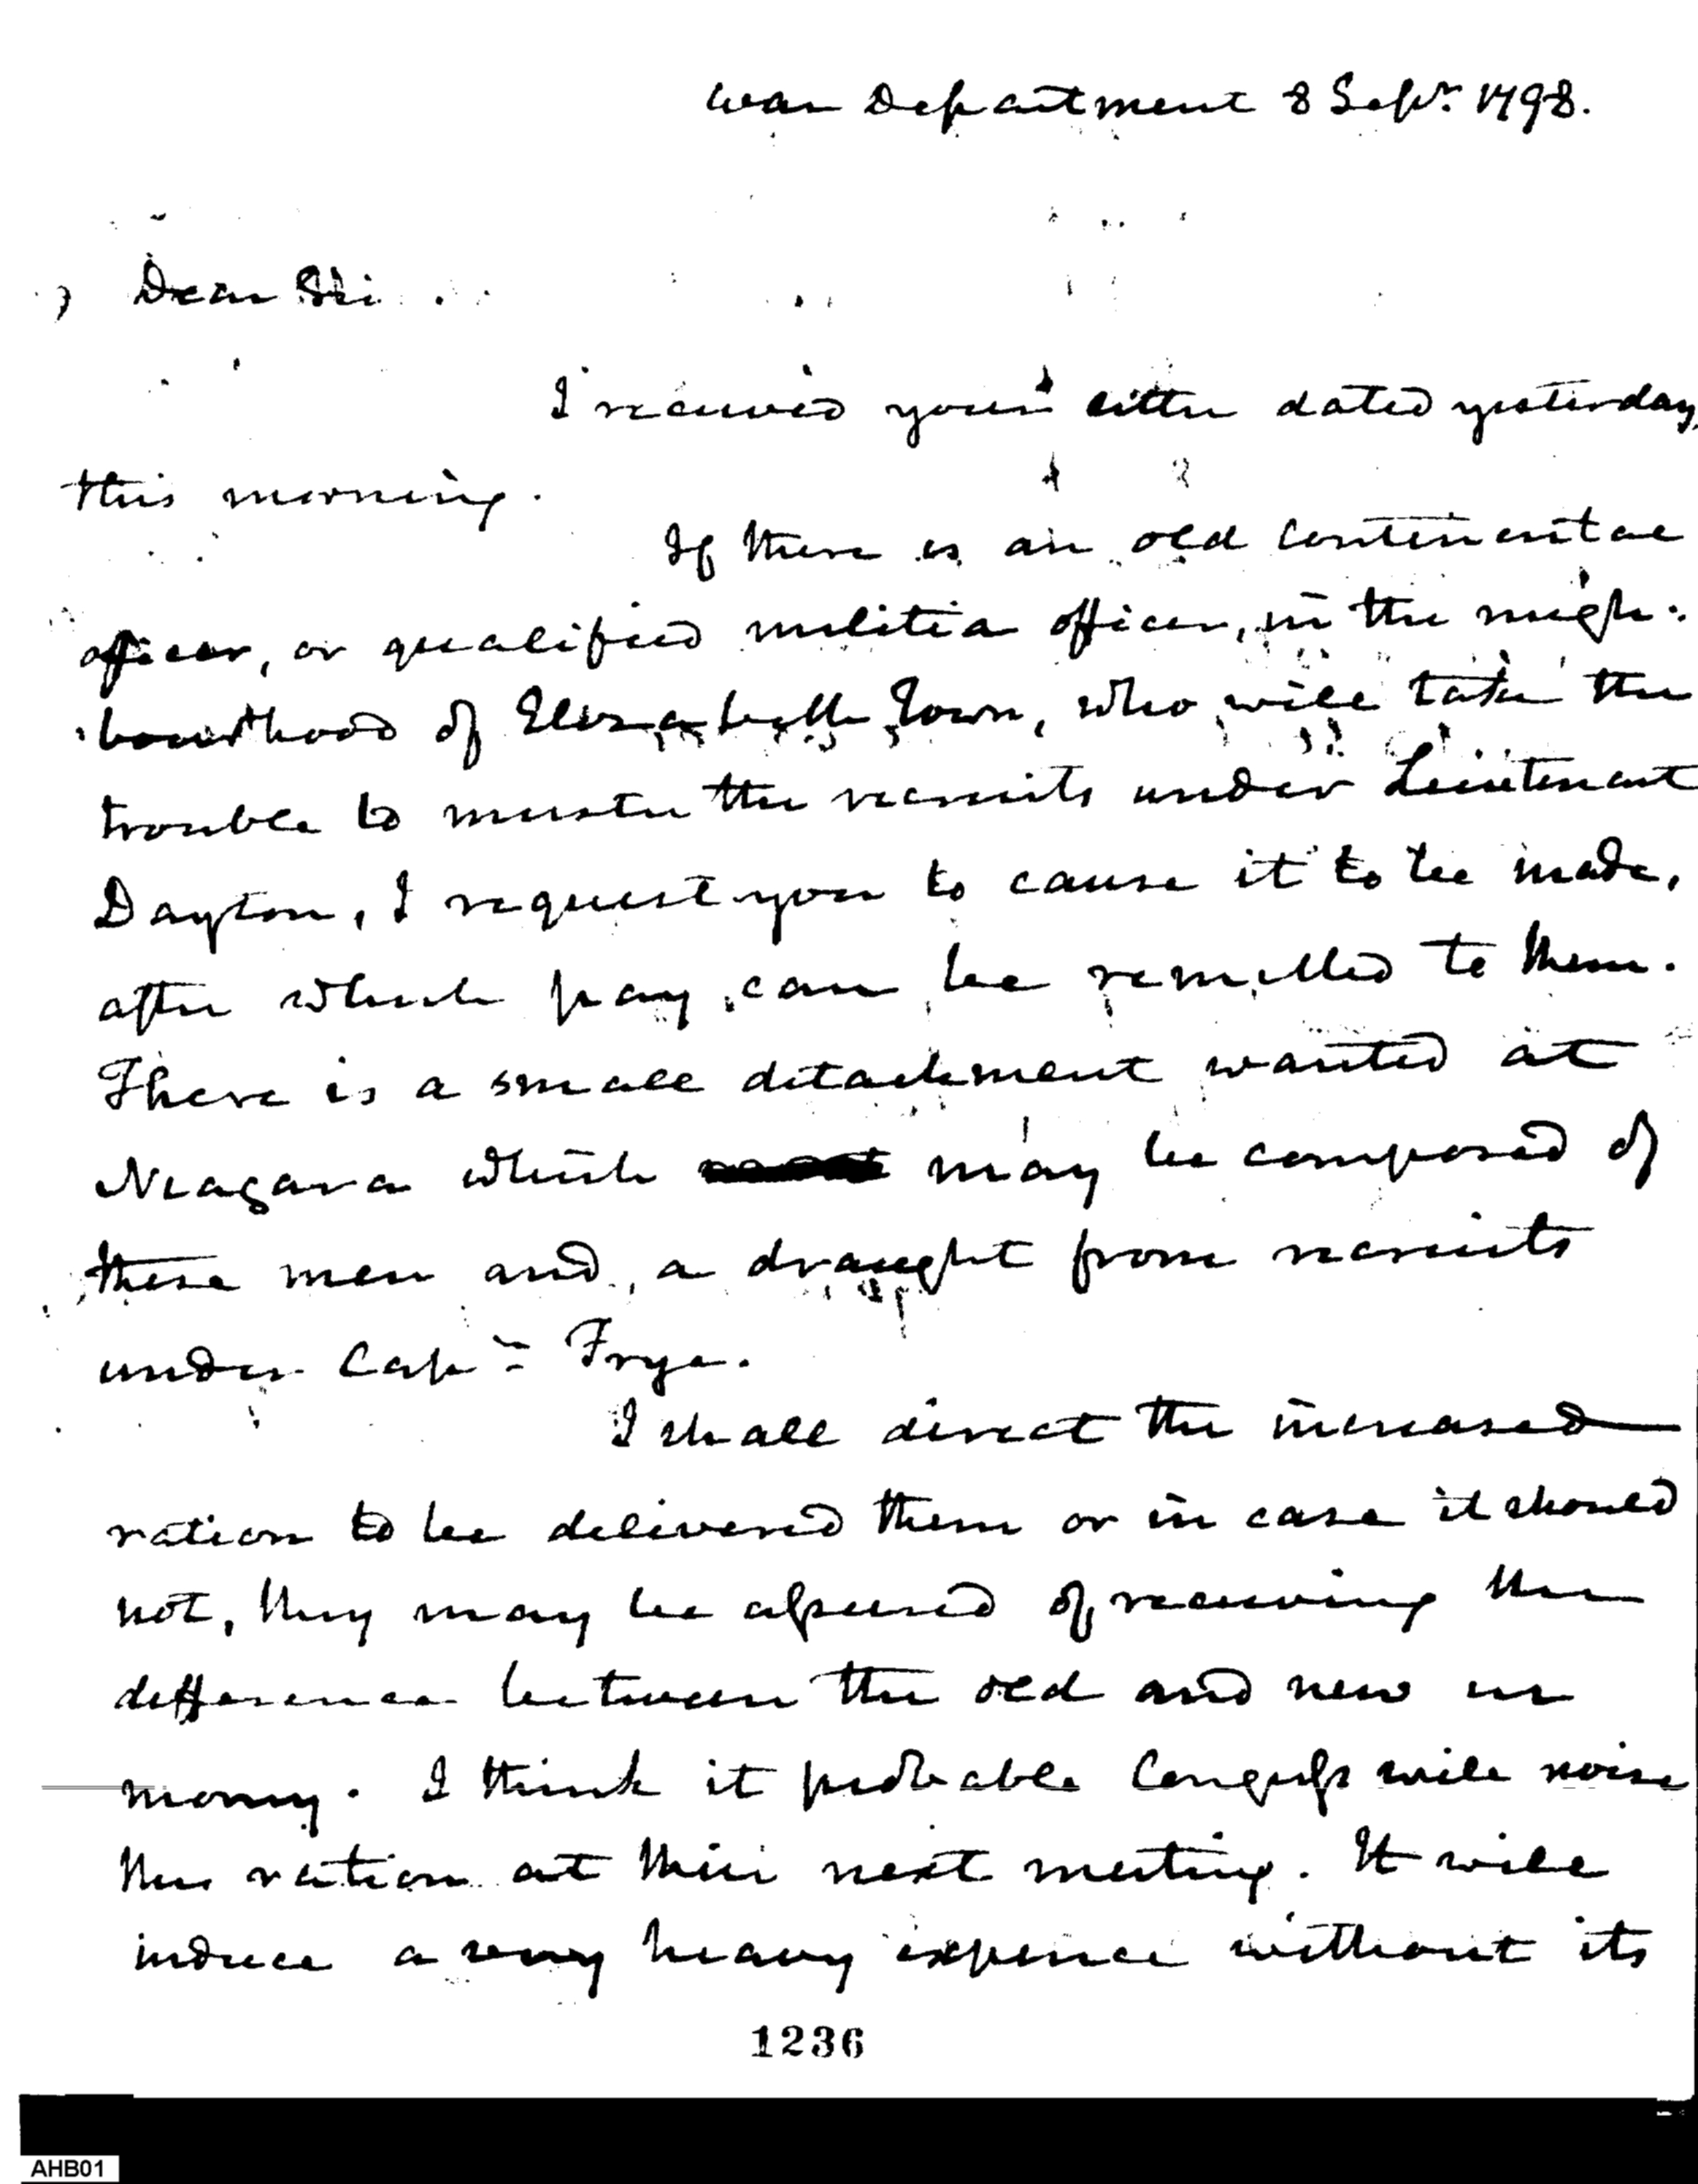 War Department 8 Sepr. 1798.
Dear Sir
I received your letter dated yesterday,
this morning.
If there is an old continental
officer, or qualified militia officer, in the neigh:
:bourhood of Elizabeth Town, who will take the
trouble to muster the recruits under Lieutenant
Dayton, I request you to cause it to be made,
after which pay can be remitted to them.
There is a small detachment wanted at
Niagara which may be composed of
these men and a draught from recruits
under Capn. Frye.
I shall direct the increased
ration to be delivered them or in case it should
not, they may be assured of receiving the
difference between the old and new in
money. I think it probable Congress will revise
the ration at their next meeting. It will
induce a very heavy expence without its
1236
AHB01